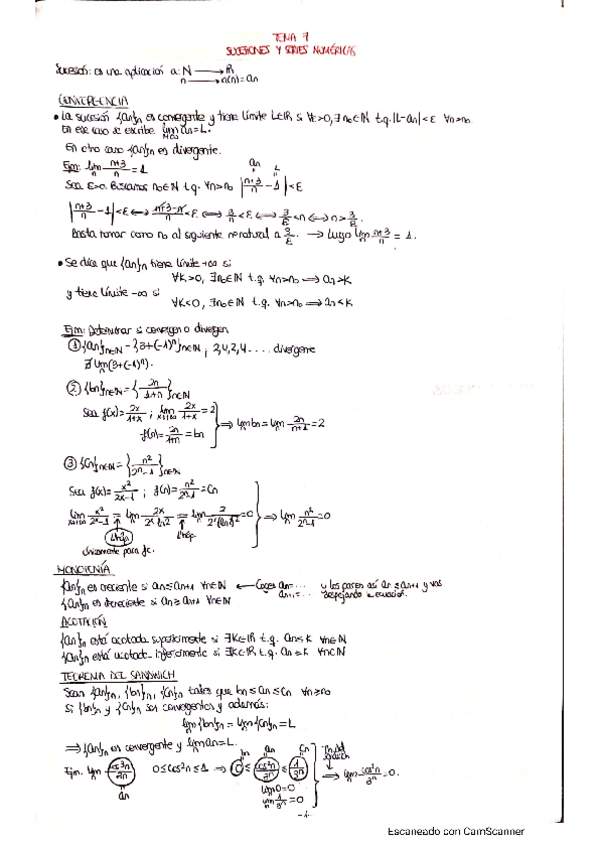 TEMA 7
SUCESIONES Y SERIES NUMÉRICAS
Sucesión: es una aplicación a: N → R
n → a(n) = an
CONVERGENCIA
• La sucesión {an}n es convergente y tiene límite L∈R si ∀ε>0, ∃n₀∈N t.q. |L-an|<ε ∀n>n₀
En ese caso se escribe lim an = L.
En otro caso {an}n es divergente.
Ejm: lim n+3/n = 1
Sea ε>0. Buscamos n₀∈N t.q. ∀n>n₀ |n+3/n - 1| < ε
an L
|n+3/n - 1| < ε ⟺ n+3-n/n < ε ⟺ 3/n < ε ⟺ 3/ε < n ⟺ n > 3/ε.
Basta tomar como n₀ al siguiente nº natural a 3/ε. ⟹ Luego lim n+3/n = 1.
• Se dice que {an}n tiene límite +∞ si
∀K>0, ∃n₀∈N t.q. ∀n>n₀ ⟹ an>K
y tiene límite -∞ si
∀K<0, ∃n₀∈N t.q. ∀n>n₀ ⟹ an<K
Ejm: Determinar si convergen o divergen
① {an}n∈N = {3+(-1)ⁿ}n∈N ; 2,4,2,4.... divergente
∄ lim(3+(-1)ⁿ).
② {bn}n∈N = {2n/1+n}n∈N
Sea f(x) = 2x/1+x ; lim x→+∞ 2x/1+x = 2
f(n) = 2n/1+n = bn
⟹ lim bn = lim 2n/n+1 = 2
③ {Cn}n∈N = {n²/2ⁿ-1}n∈N
Sea f(x) = x²/2x-1 ; f(n) = n²/2ⁿ-1 = Cn
lim x→+∞ x²/2ˣ-1 = lim 2x/2ˣ ln2 = lim 2/2ˣ(ln2)² = 0 ⟹ lim n²/2ⁿ-1 = 0
L'Hôp L'Hôp.
únicamente para fc.
MONOTONÍA
{an}n es creciente si an≤an+1 ∀n∈N ← Coges an=... y los pones así an ≤ an+1 y vas
{an}n es decreciente si an≥an+1 ∀n∈N an+1=... despejando la ecuación.
ACOTACIÓN
{an}n está acotada superiormente si ∃K∈R t.q. an≤K ∀n∈N
{an}n está acotada inferiormente si ∃K∈R t.q. an≥K ∀n∈N
TEOREMA DEL SANDWICH
Sean {an}n, {bn}n, {cn}n tales que bn≤an≤cn ∀n≥n₀
Si {bn}n y {cn}n son convergentes y además:
lim{bn}n = lim{cn}n = L
⟹ {an}n es convergente y lim an = L.
bn an Cn
Ejm. lim cos²n/3ⁿ 0≤cos²n≤1 ⟹ 0 ≤ cos²n/3ⁿ ≤ 1/3ⁿ
an
lim 0 = 0
lim 1/3ⁿ = 0
Tm. del
sándwich
⟹ lim cos²n/3ⁿ = 0.
-1-
Escaneado con CamScanner